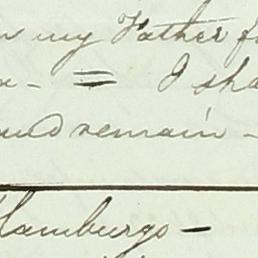 my Father
= I sha
remain -
Hamburgo -